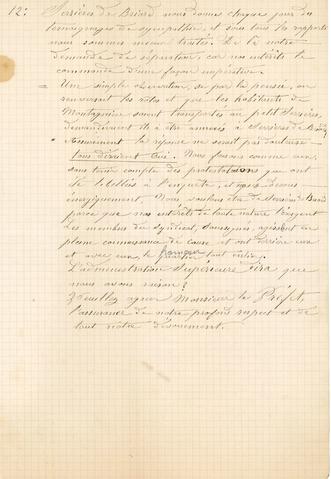 12: Serrières de Briord nous donne chaque jour des
témoignages de sympathie, et sous tous les rapports
nous sommes mieux traités. De là notre
demande de séparation, car nos intérêts le
commande d'une façon impérative.
= Une simple observation, si par la pensée, on
renversait les rôles et que les habitants de
Montagnieu soient transportés au petit Serrières,
demanderaient ils à être annexés à Serrières de Briord
Assurément la réponse ne serait pas douteuse
tous diraient Oui. Nous faisons comme eux,
sans tenir compte des protestations que ont
de libellées à l'enquête, et nous disons
énergiquement. Nous voulons être de Serrières de Briord
parce que nos intérêts de toute nature l'exigent
Les membres du syndicat, soussignés, agissent en
pleine connaissance de cause et ont derrière eux
et avec eux, le hameau tout entier.
L'administration Supérieure dira que
nous avons raison?
Veuillez agréer Monsieur le Préfet,
l'assurance de notre profond respect et de
tout notre dévouement.